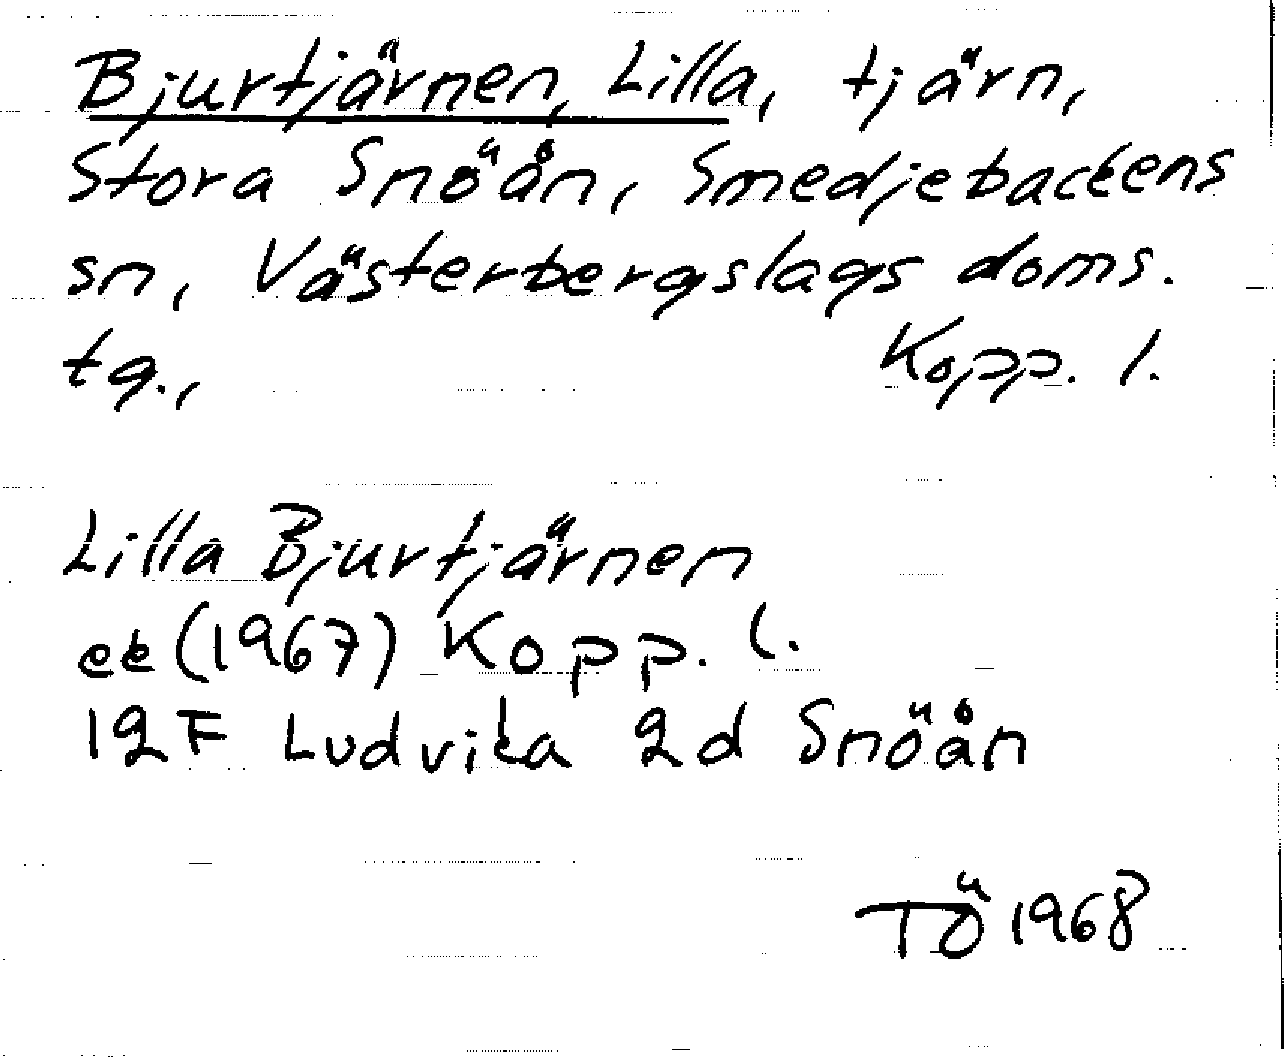 Bjurtjärnen, Lilla, tjärn,
Stora Snöån, Smedjebackens
sn, Västerbergslags doms.
tg., Kopp. l.
Lilla Bjurtjärnen
ek (1967) Kopp. l.
12F Ludvika 2d Snöån
TÖ 1968